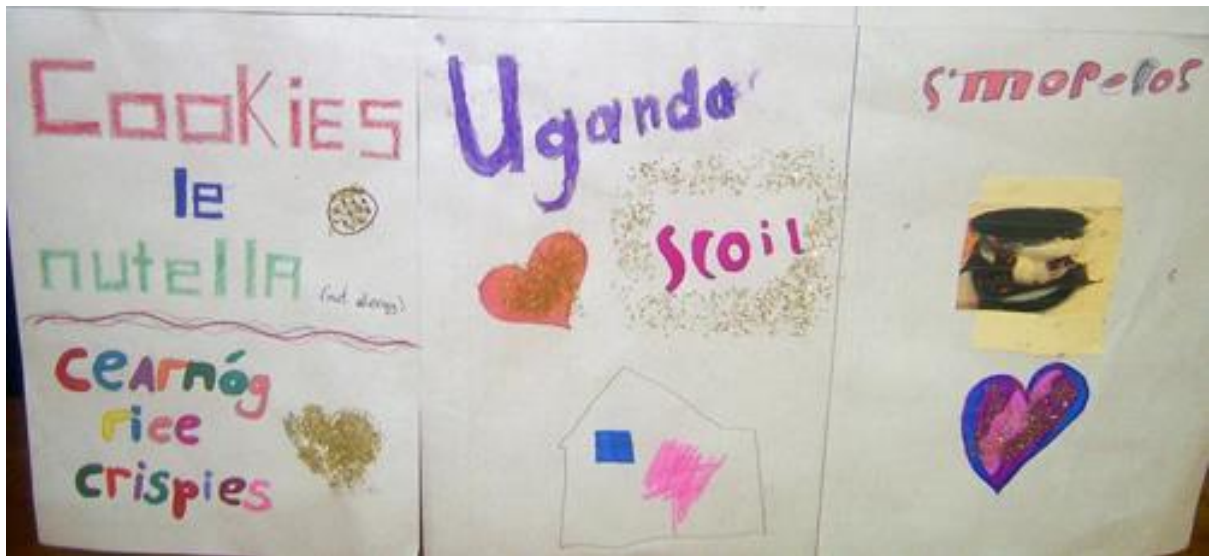 Cookies
le
nutella
(nut alergy)
cearnóg
rice
crispies
Uganda
Scoil
s'mopelos